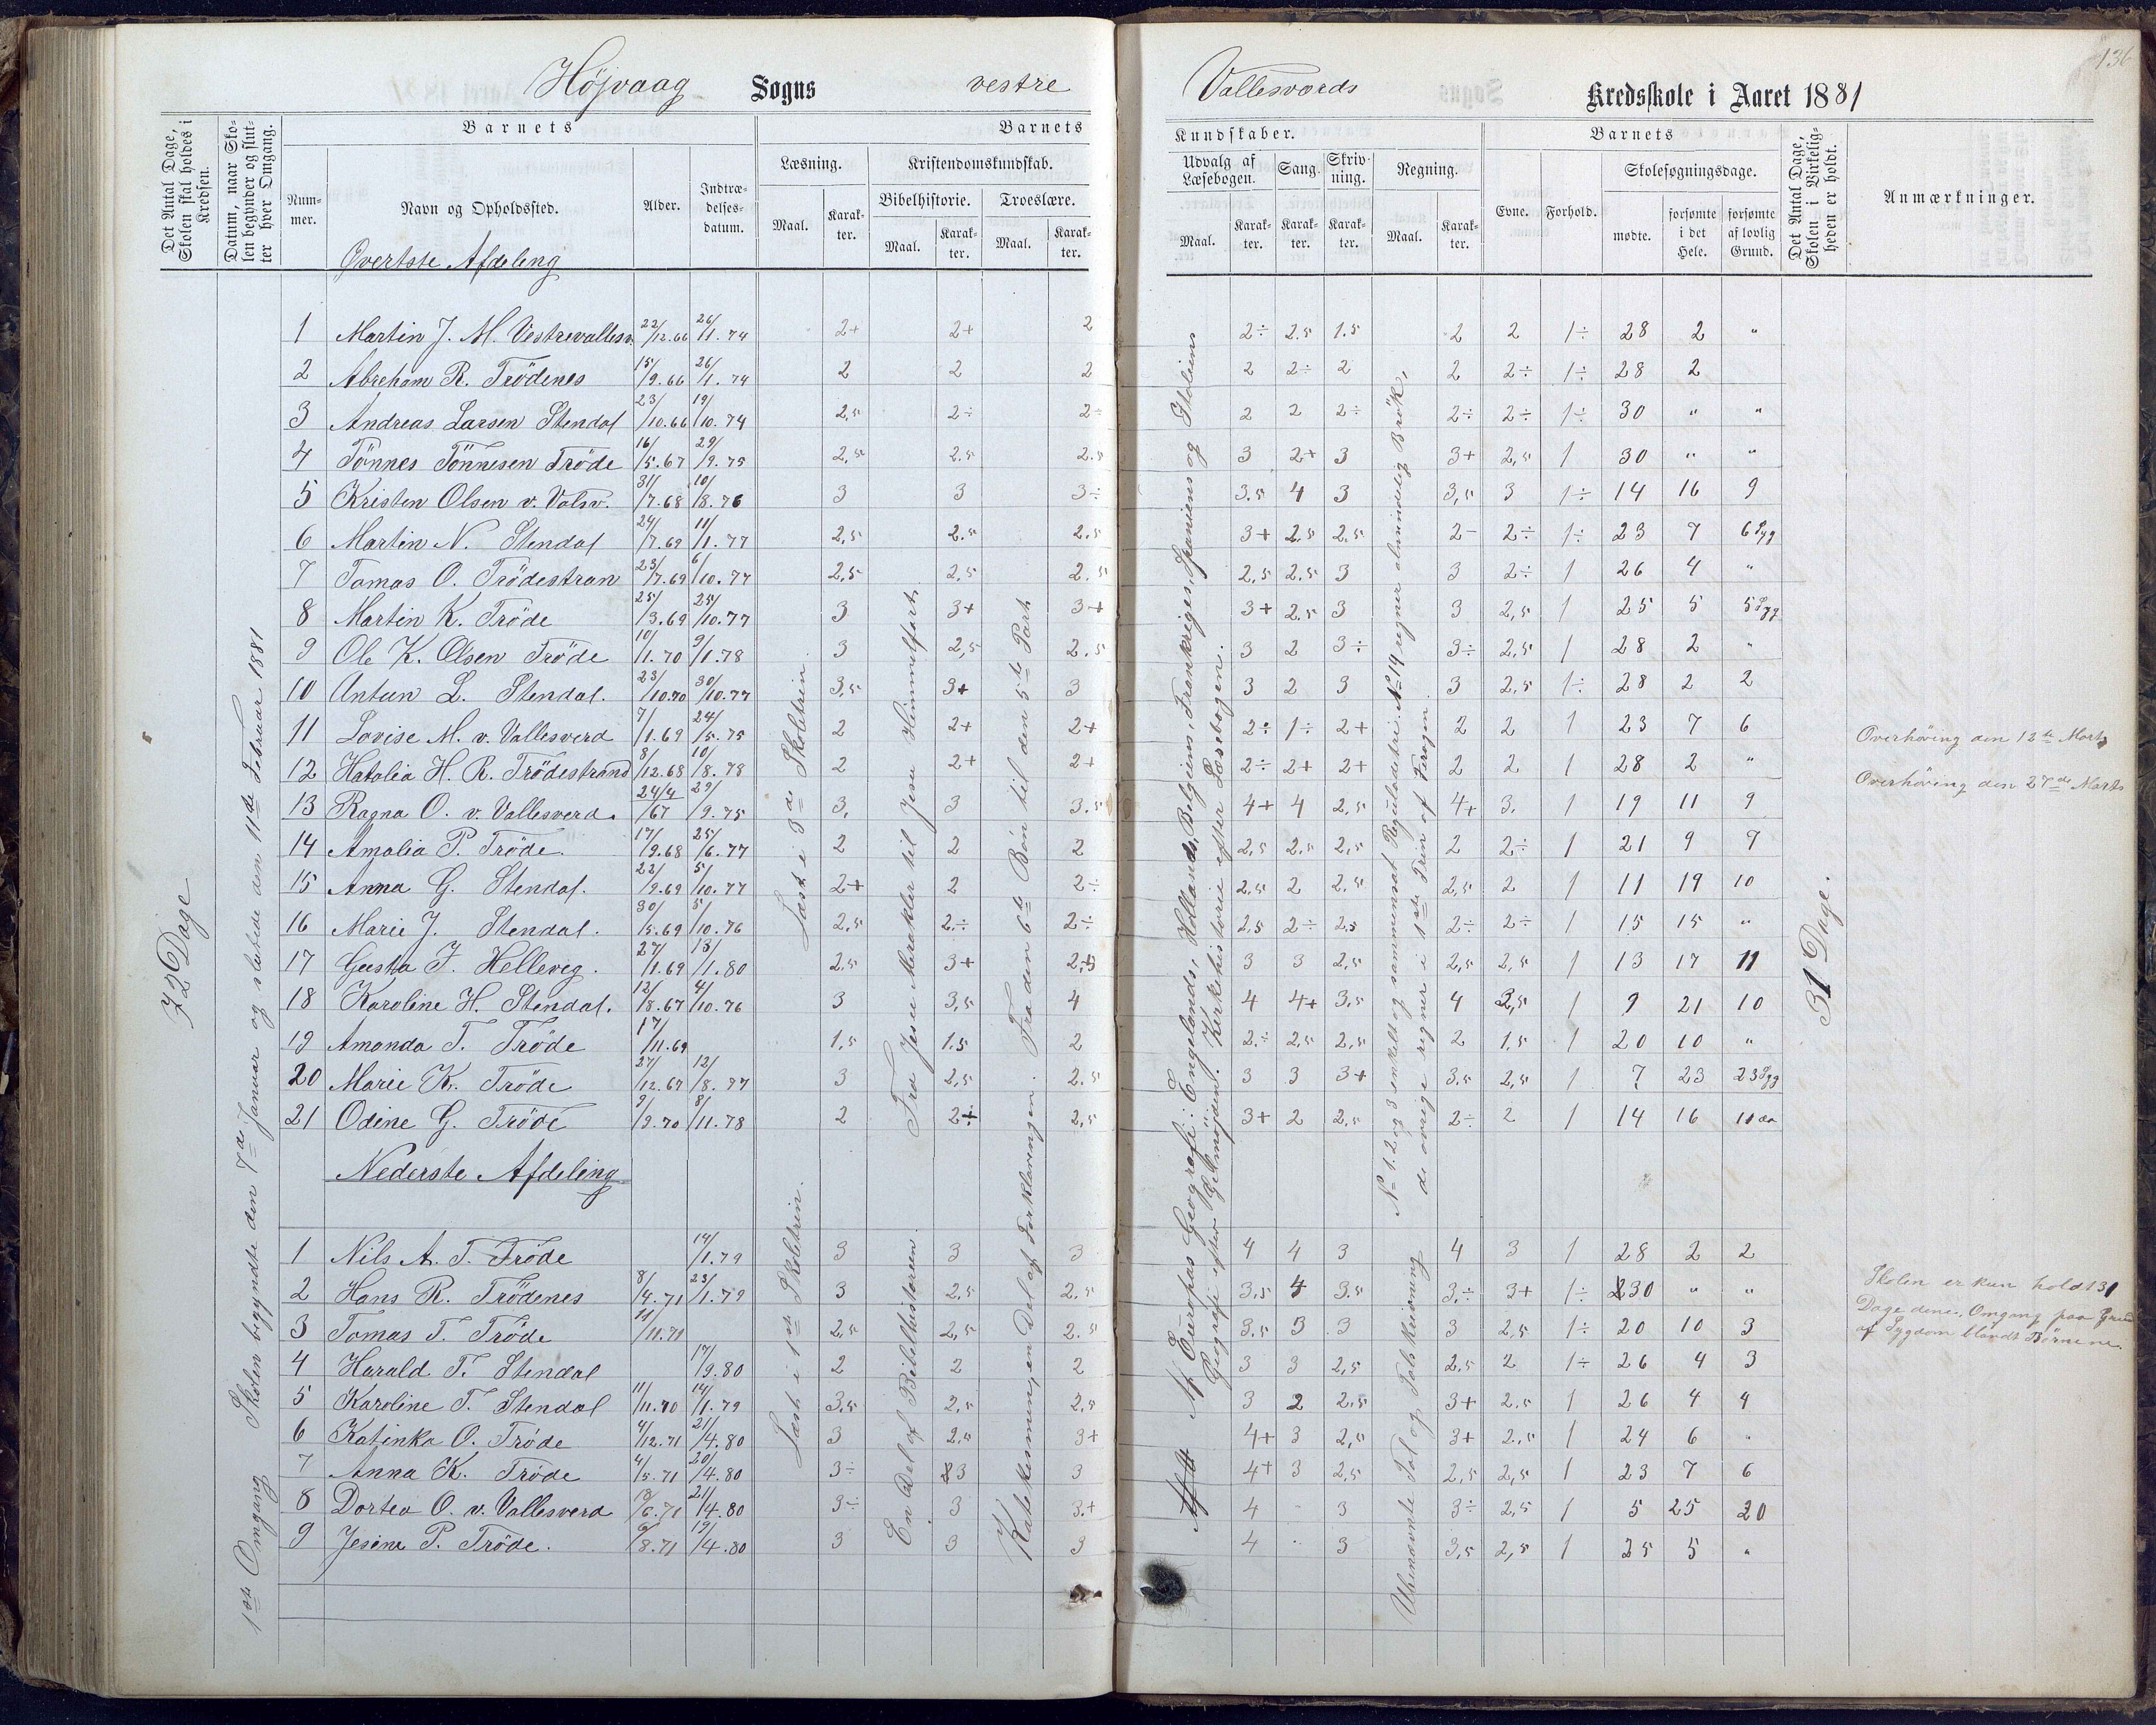 136
Højvaag Sogns vestre Vallesværds Kredsskole i Aaret 1881
Det Antal Dage, Skolen skal holdes i Kredsen.
Datum, naar Skolen begynder og slutter hver Omgang.
Barnets
Nummer.
Navn og Opholdssted.
Alder.
Indtrædelsesdatum.
Barnets Kundskaber.
Læsning.
Maal.
Karakter.
Kristendomskundskab.
Bibelhistorie.
Maal.
Karakter.
Troeslære.
Maal.
Karakter.
Udvalg af Læsebogen.
Maal.
Karakter.
Sang.
Karakter.
Skrivning.
Karakter.
Regning.
Maal.
Karakter.
Barnets
Evne.
Forhold.
Skolesøgningsdage.
mødte.
forsømte i det Hele.
forsømte af lovlig Grund.
Det Antal Dage, Skolen i Virkeligheden er holdt.
Anmærkninger.
72 Dage
1ste Omgang Skolen begyndte den 7de Januar og sluttede den 11de Februar 1881
Læst i 3de Skoletrin.
Fra Jesu Mirakler til Jesu Himmelfart.
Fra den 6te Bøn til den 5te Part
Af Europas Geografi: Engelands, Hollands, Belgiens, Frankriges, Spaniens og Italiens
Geografi efter Geelmyden. Kirkehistorie efter Læsebogen.
No 1. 2 og 3 enkelt og sammensat Reguladetri. No 14 regner almindelig Brøk,
de øvrige regner i 1ste Trin af
31 Dage.
Øverste Afdeling
1 Martin J. M. Vestrevallesv. 22/12.66 26/1.74 2+ 2+ 2 2÷ 2.5 1.5 2 2 1÷ 28 2 "
2 Abreham R. Trödenes 15/9.66 26/1.74 2 2 2 2 2÷ 2 2 2÷ 1÷ 28 2
3 Andreas Larsen Stendal 23/10.66 19/10.74 2,5 2÷ 2÷ 2 2 2÷ 2÷ 2÷ 1÷ 30 " "
4 Tönnes Tönnesen Tröde 16/5.67 29/9.75 2,5 2.5 2.5 3 2+ 3 3+ 2,5 1 30 " "
5 Kristen Olsen v. Valsv. 31/7.68 10/8.76 3 3 3÷ 3.5 4 3 3,5 3 1÷ 14 16 9
6 Martin N. Stendal 24/7.69 11/1.77 2,5 2.5 2.5 3+ 2.5 2.5 2- 2÷ 1÷ 23 7 6 Syg
7 Tomas O. Trödestran 23/7.69 6/10.77 2,5 2,5 2.5 2,5 2.5 3 3 2÷ 1 26 4 "
8 Martin K. Tröde 25/3.69 25/10.77 3 3+ 3+ 3+ 2.5 3 3 2,5 1 25 5 5 Syg
9 Ole K. Olsen Tröde 10/1.70 9/1.78 3 2,5 2.5 3 2 3÷ 3÷ 2,5 1 28 2 "
10 Antun L. Stendal. 23/10.70 30/10.77 3,5 3+ 3 3 2 3 3 2,5 1÷ 28 2 2
11 Lovise M. v. Vallesverd 7/1.69 24/5.75 2 2+ 2+ 2÷ 1÷ 2+ 2 2 1 23 7 6
12 Hatalia H. R. Trödestrand 8/12.68 10/8.78 2 2+ 2+ 2÷ 2+ 2+ 2 2 1 28 2 "
13 Ragna O. v. Vallesverd. 24/4/67 29/9.75 3, 3 3.5 4+ 4 2,5 4+ 3. 1 19 11 9
14 Amalia P. Tröde. 17/9.68 25/6.77 2 2 2 2,5 2.5 2,5 2 2÷ 1 21 9 9
15 Anna G. Stendal. 22/9.69 5/10.77 2+ 2 2÷ 2,5 2 2.5 2,5 2 1 11 19 10
16 Marie J. Stendal. 30/5.69 5/10.76 2,5 2÷ 2÷ 2,5 2÷ 2,5 2÷ 2÷ 1 15 15 "
17 Gusta F. Helleveg. 27/1.69 13/1.80 2,5 3+ 3 3 2,5 2,5 2,5 1 13 17 11
18 Karoline H. Stendal. 12/8.67 4/10.76 3 3,5 4 4 4+ 3,5 4 3,5 1 9 21 10
19 Amanda T. Tröde 17/11.69 1,5 1.5 2 2÷ 2,5 2,5 2 1.5 1 20 10 "
20 Marie K. Tröde 27/12.67 12/8.77 3 2,5 2.5 3 3 3+ 3.5 2,5 1 7 23 23 Syg
21 Odine G. Tröde 9/9.70 8/11.78 2 2÷ 2,5 3+ 2 2,5 2÷ 2 1 14 16 11 do
Nederste Afdeling
Læst i 1ste Skoletrin.
En Del af Bibelhistorien.
Katekesmun, en Del af Forklaringen.
Ubenævnte Tal og Talskrivning
1 Nils A. T. Tröde 14/1.79 3 3 3 4 4 3 4 3 1 28 2 2
2 Hans R. Trödenes 8/4.71 23/1.79 3 2,5 2.5 3,5 4 3.5 3,÷ 3+ 1÷ 30 " "
3 Tomas T. Tröde 11/11.71 2,5 2,5 2.5 3.5 3 3 3 2,5 1÷ 20 10 3
4 Harald T. Stendal 17/9.80 2 2 2 3 3 2,5 2.5 2 1÷ 26 4 3
5 Karoline T. Stendal 11/11.70 14/1.79 3,5 2,5 2,5 3 2 2.5 3+ 2.5 1 26 4 4
6 Katinka O. Tröde 4/12.71 21/4.80 3 2.5 3+ 4+ 3 2,5 3+ 2.5 1 24 6 "
7 Anna K. Tröde 4/5.71 20/4.80 3÷ 3 3 4+ 3 2,5 2,5 2,5 1 23 7 6
8 Dortea O. v. Vallesverd 18/6.71 21/4.80 3÷ 3 3.+ 4 - 3 3÷ 2,5 1 5 25 20
9 Jesine P. Tröde. 6/8.71 19/4.80 3 3 3 4 - 3 3,5 2,5 1 25 5 "
Overhøring den 12te Marts
Overhøring den 27de Marts
Skolen er kun holdt 31
Dage denne Omgang paa Grund
af Sygdom blandt Børnene.